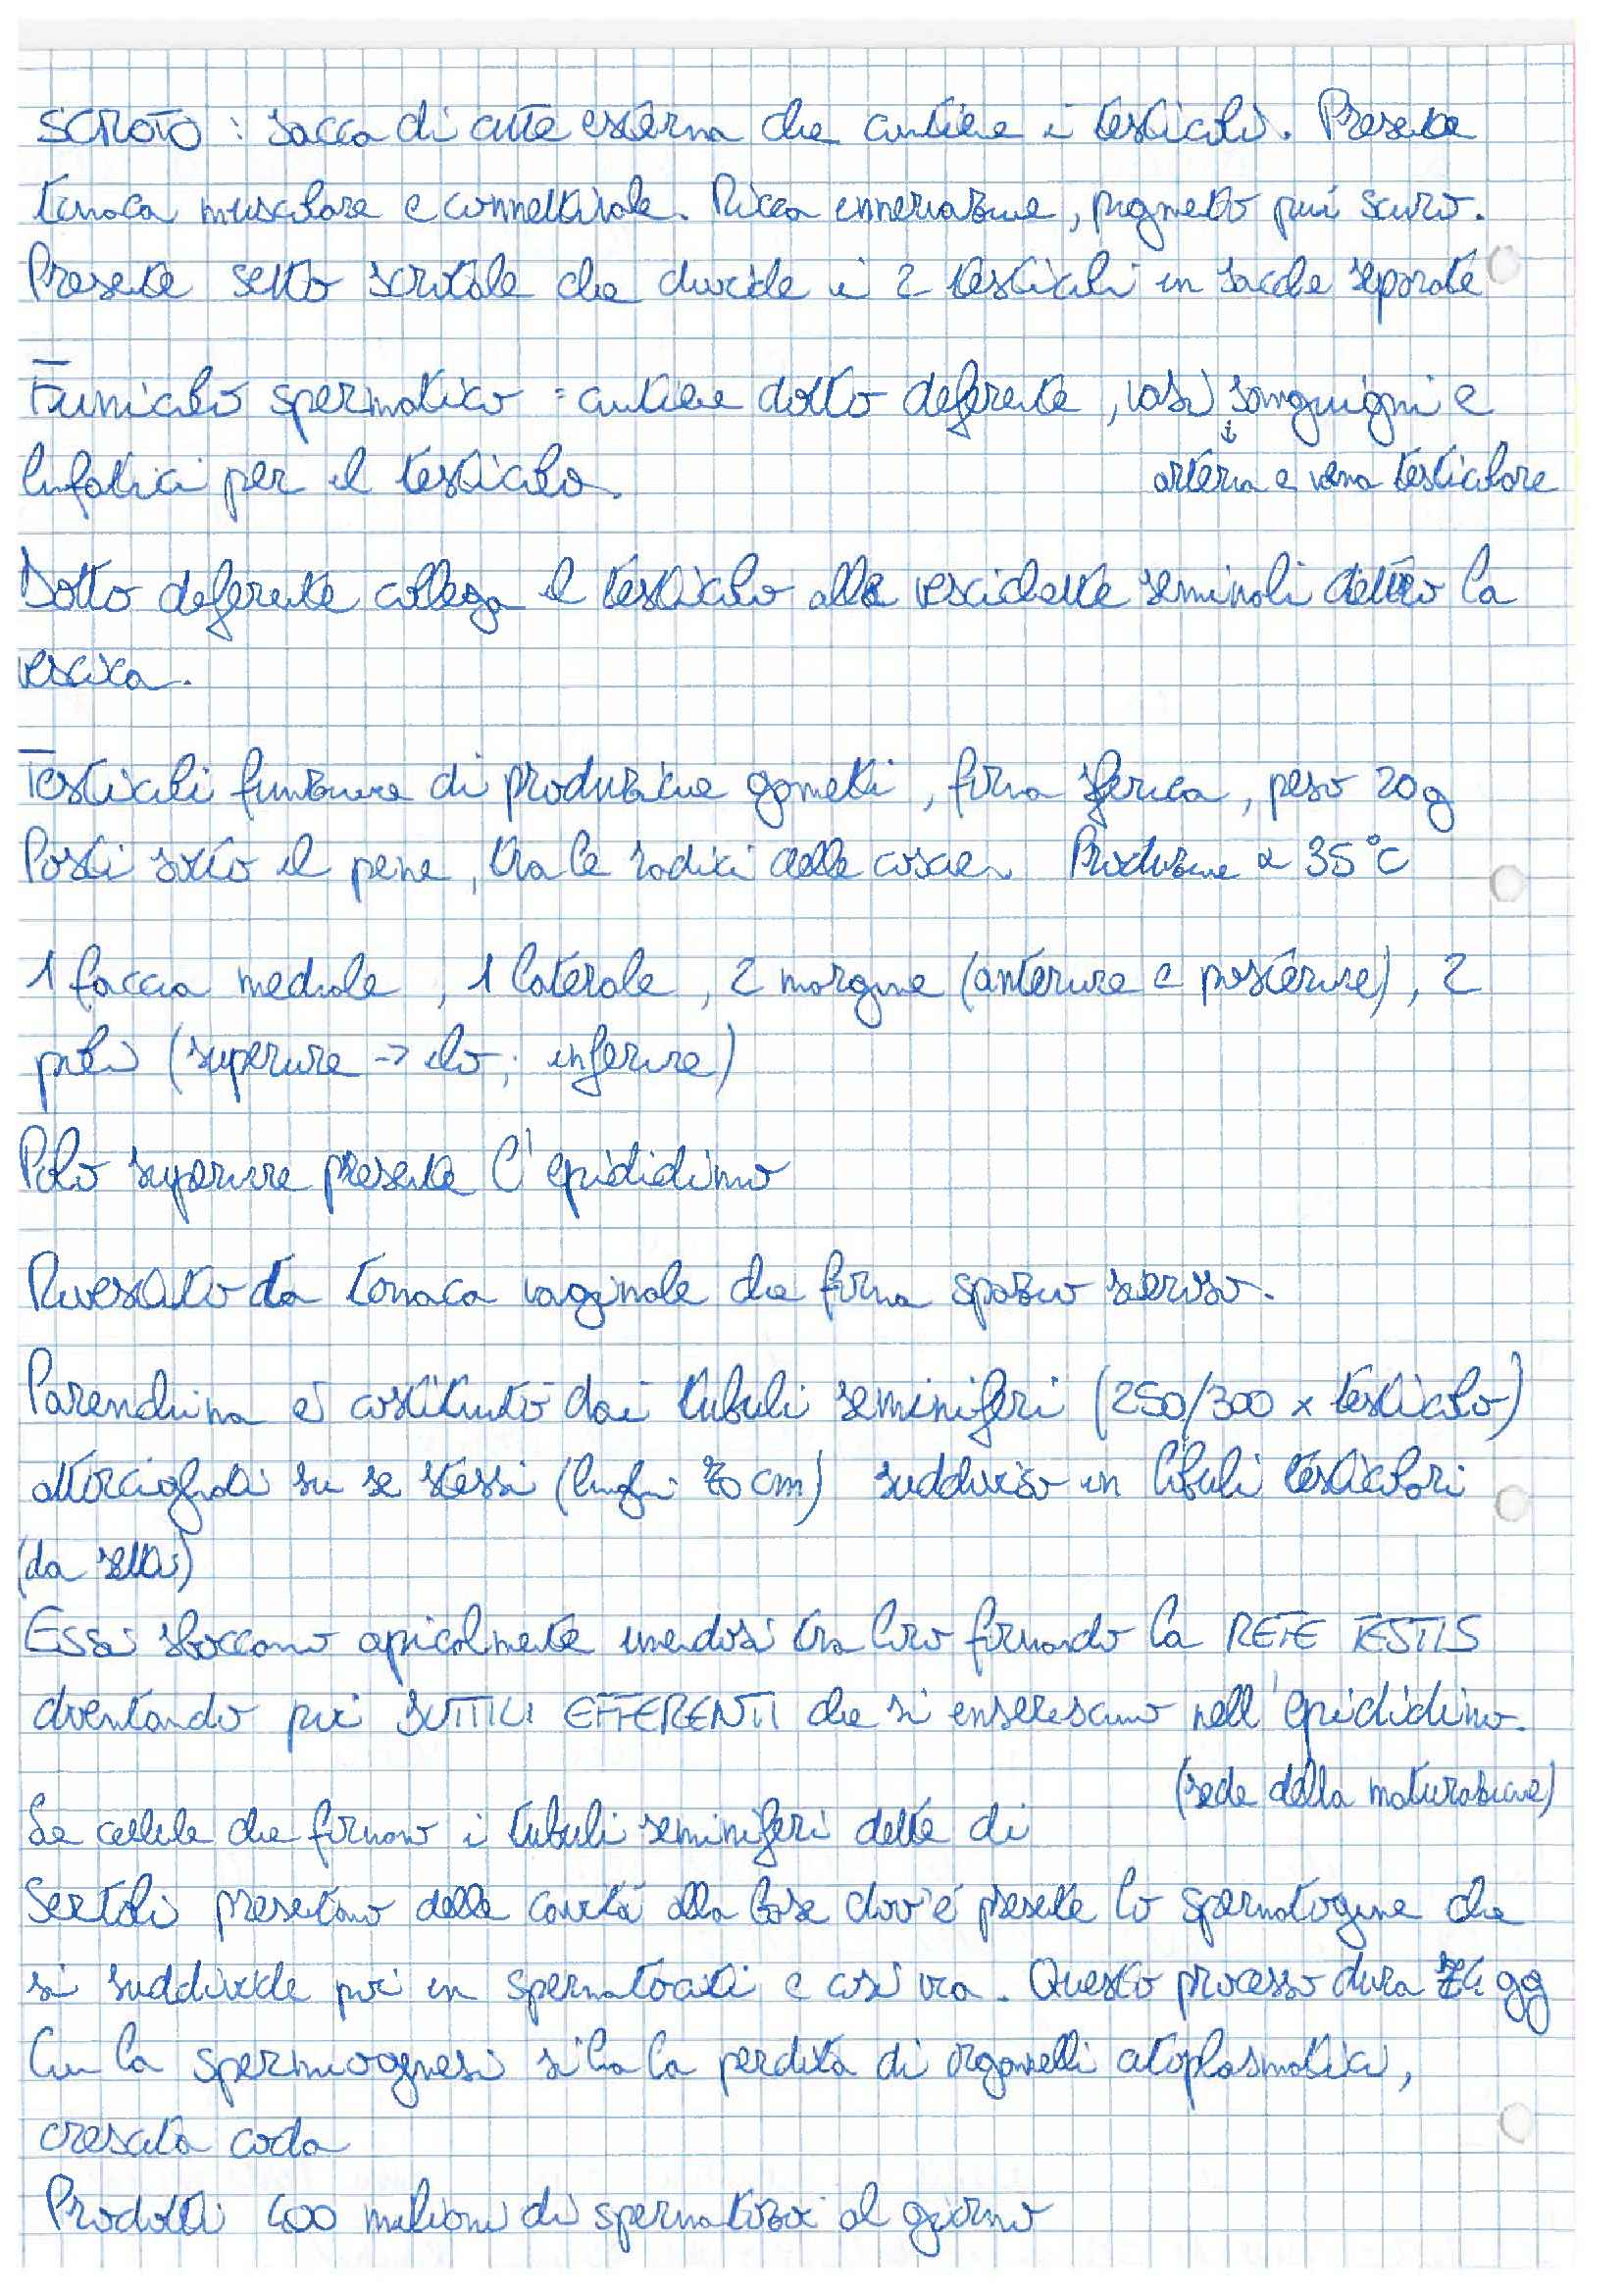 SCROTO : sacca di cute esterna che contiene i testicoli. Presente
tonaca muscolare e connettivale. Ricca innervazione, pigmento più scuro.
Presente setto scrotale che divide i 2 testicoli in sacche separate
Funicolo spermatico = contiene dotto deferente, vasi sanguigni e
↓
linfatici per il testicolo.
arteria e vena testicolare
Dotto deferente collega il testicolo alle vescichette seminali dietro la
vescica.
Testicoli funzione di produzione gameti, forma sferica, peso 20g
Posti sotto il pene, tra le radici delle cosce. Produzione a 35°C
1 faccia mediale, 1 laterale, 2 margine (anteriore e posteriore), 2
poli (superiore -> ilo; inferiore)
Polo superiore presente l'epididimo
Rivestito da tonaca vaginale che forma spazio sieroso.
Parenchima è costituito dai tubuli seminiferi (250/300 x testicolo)
attorcigliati su se stessi (lunghi 70 cm) suddiviso in lobuli testicolari
(da setti)
Essi sboccano apicalmente unendosi tra loro formando la RETE TESTIS
diventando poi DUTTILI EFFERENTI che si inseriscono nell'epididimo.
(sede della maturazione)
Le cellule che formano i tubuli seminiferi dette di
Sertoli presentano delle cavità alla base dov'è presente lo spermatogone che
si suddivide poi in spermatociti e così via. Questo processo dura 74 gg
Con la spermiogenesi si ha la perdita di organelli citoplasmatici,
crescita coda
Prodotti 400 milioni di spermatozoi al giorno